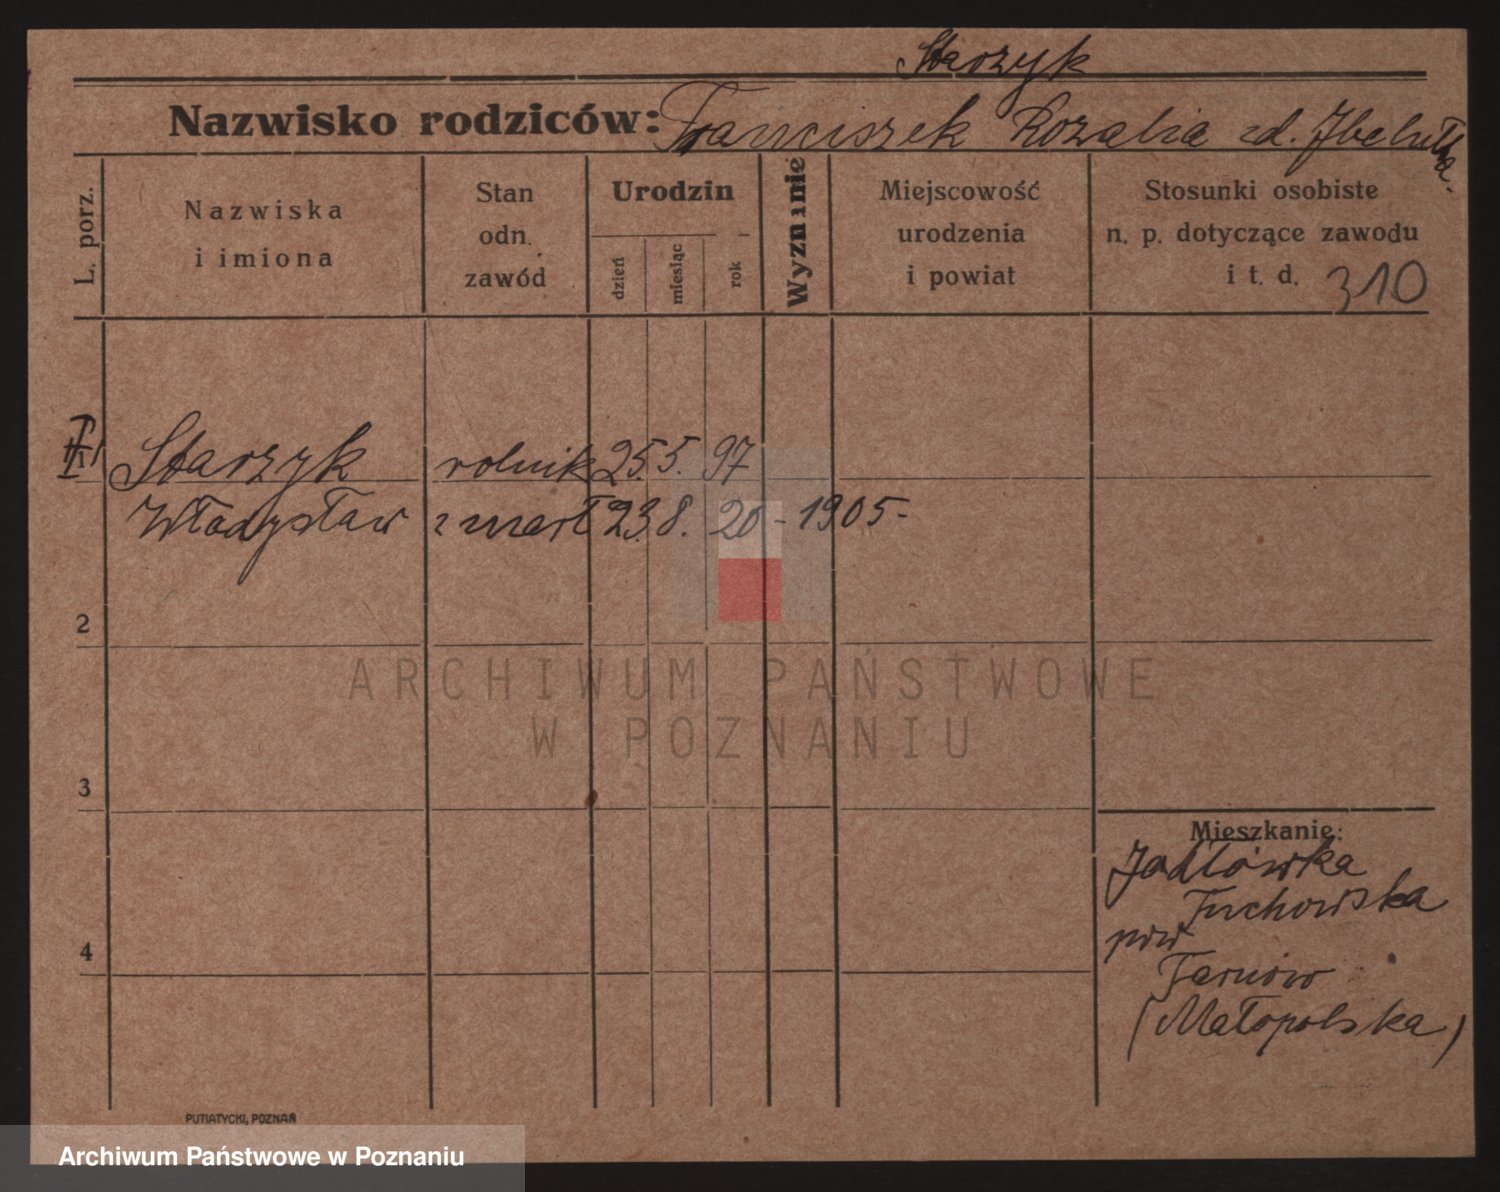 Starzyk
Nazwisko rodziców: Franciszek Rozalia zd.
L. porz.
Nazwiska
i imiona
Stan
odn.
zawód
Urodzin
dzień
miesiąc
rok
Wyznanie
Miejscowość
urodzenia
i powiat
Stosunki osobiste
n. p. dotyczące zawodu
i t. d. 310
Starzyk rolnik 25. 5. 97
Władysław zmarł 23. 8. 20 - 1905 -
2
3
4
ARCHIWUM PAŃSTWOWE
W POZNANIU
Mieszkanie:
Jodłówka
Tuchowska
pow
Tarnów
(Małopolska)
PUTIATYCKI, POZNAŃ
Archiwum Państwowe w Poznaniu